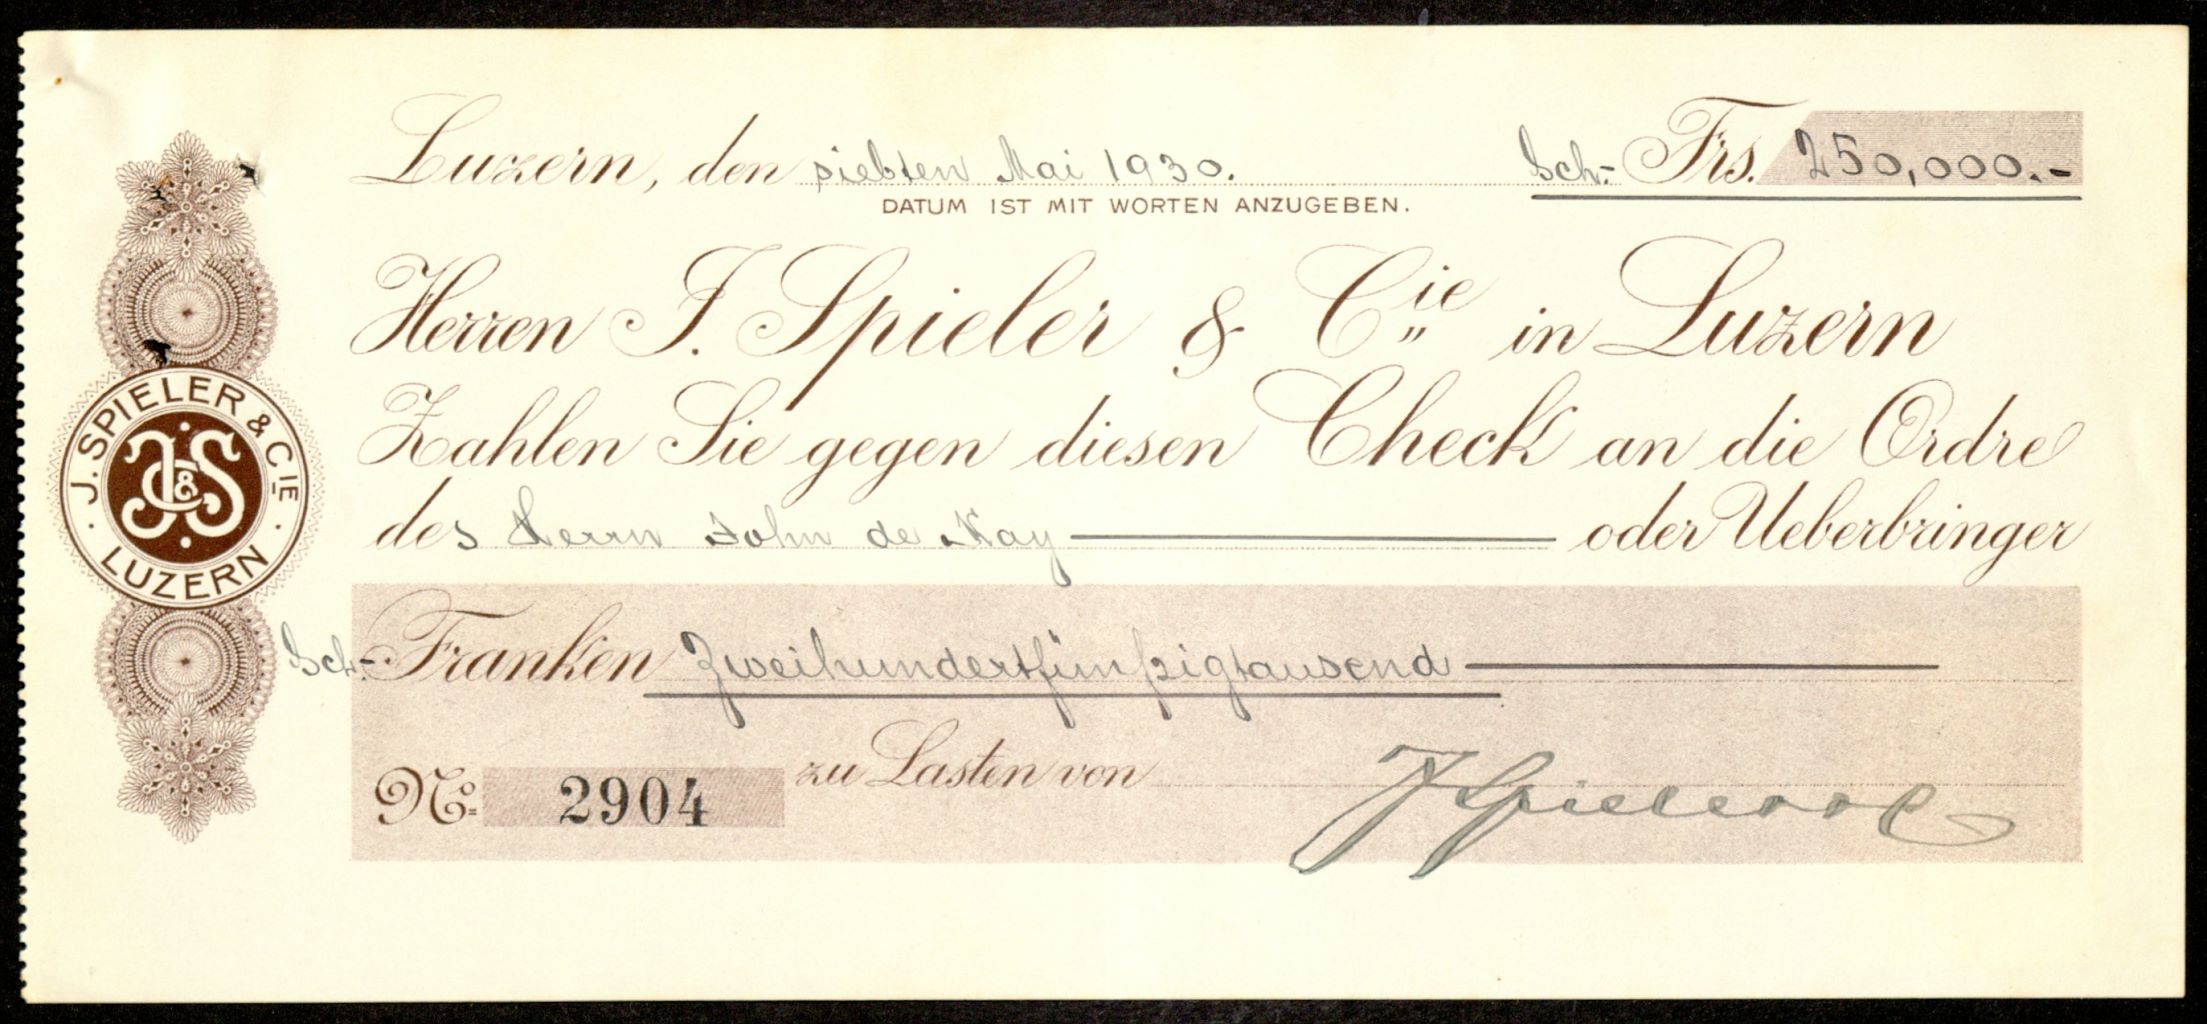 Luzern, den siebten Mai 1930. Sch.- Frs. 250,000.-
DATUM IST MIT WORTEN ANZUGEBEN.
Herren J. Spieler & Cie in Luzern
Zahlen Sie gegen diesen Check an die Ordre
des Herrn John de Kay oder Ueberbringer
Sch.- Franken Zweihundertfünfzigtausend
No. 2904 zu Lasten von
J. SPIELER & CIE
LUZERN